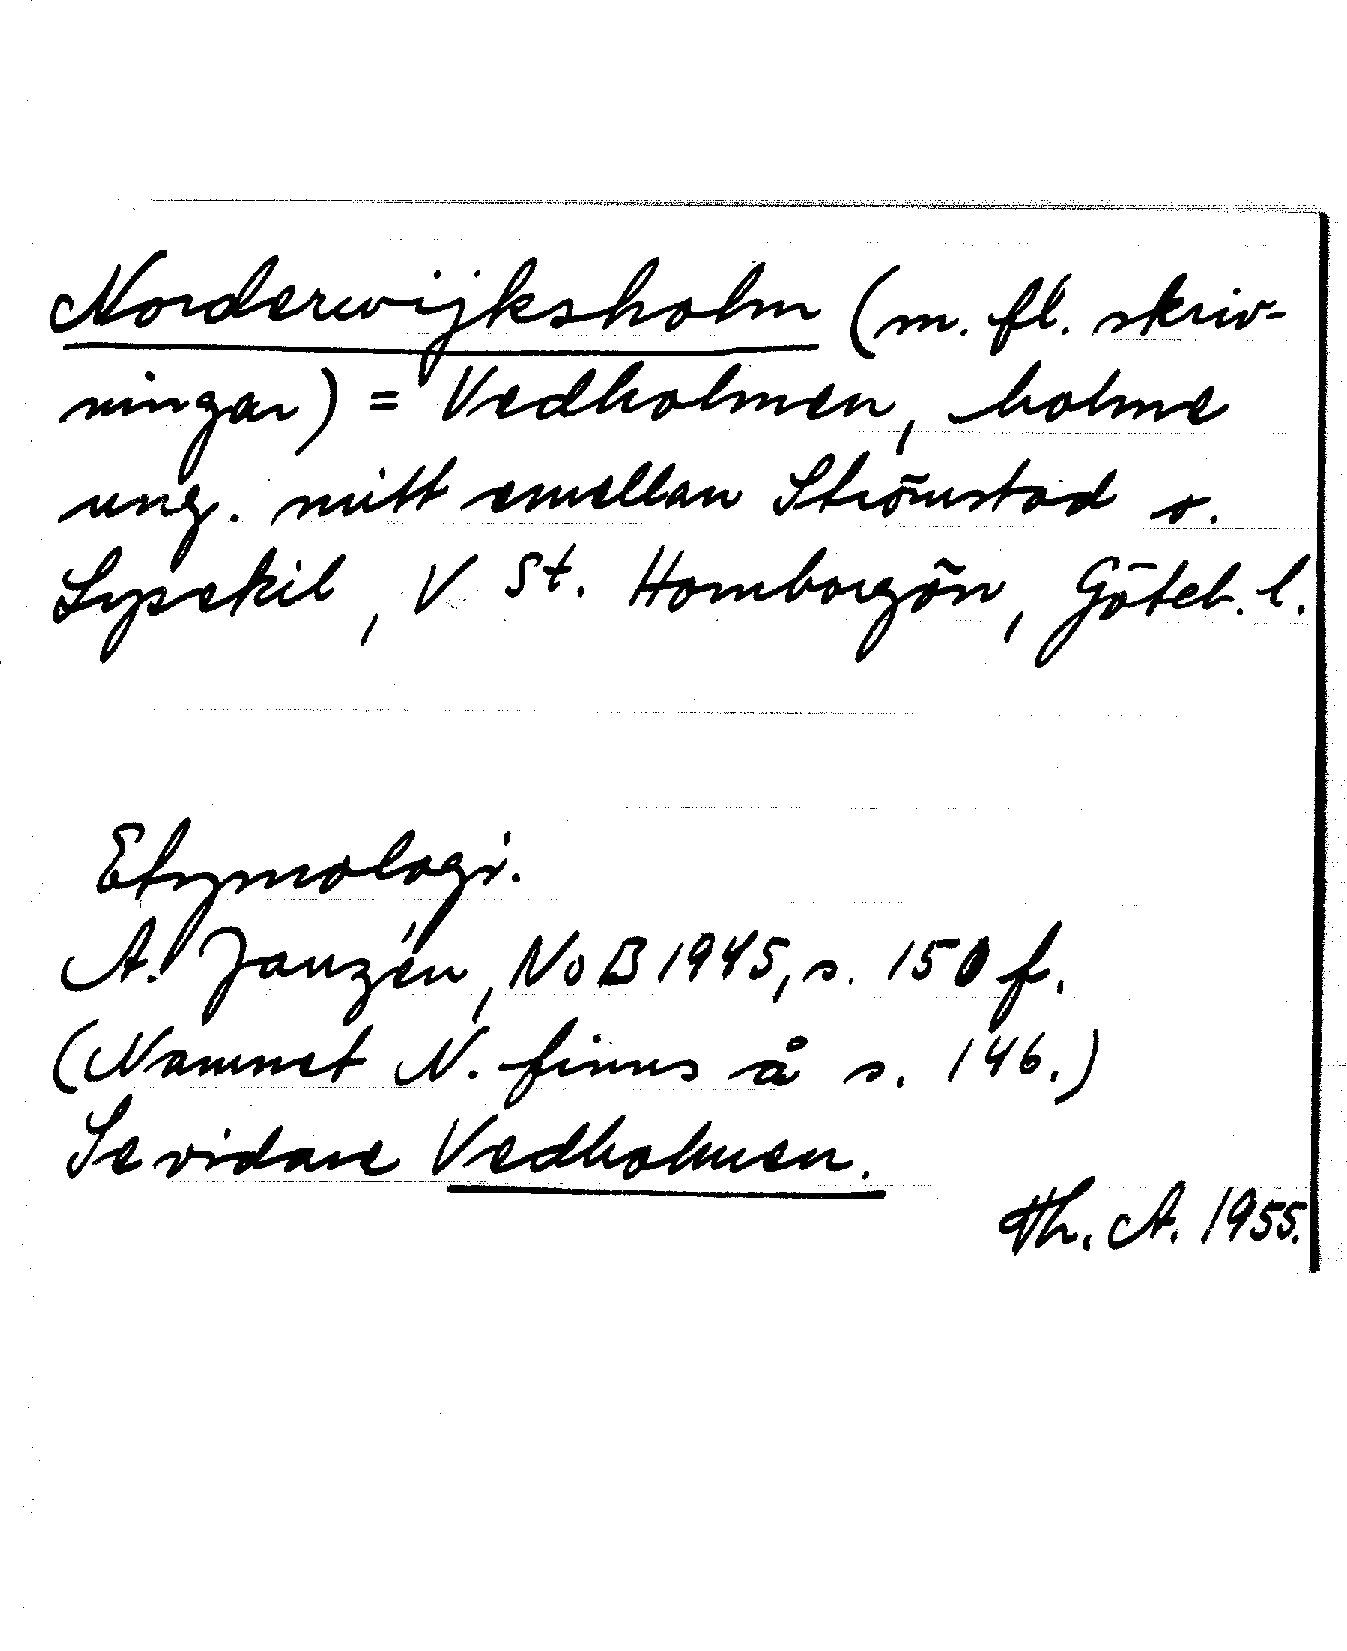 Norderwijksholm (m. fl. skriv-
ningar) = Vedholmen, holme
ung. mitt emellan Strömstad o.
Lysekil, V St. Hornborgön, Göteb. l.
Etymologi.
A. Janzén, NoB 1945, s. 150 f.
(Namnet N. finns å s. 146.)
Se vidare Vedholmen.
Th. A. 1955.